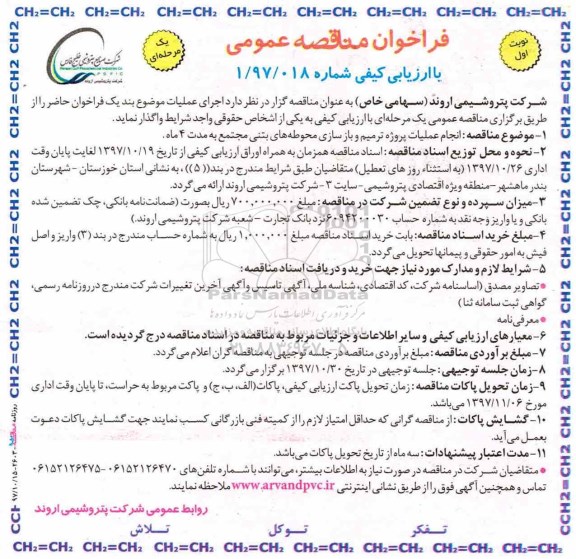 CH2=CH2 CH2=CH2 CH2=CH2 CH2=CH2 CH2=CH2 CH2=CH2 CH2=CH2 CH2=CH2
نوبت اول
فراخوان مناقصه عمومی
یک مرحله‌ای
با ارزیابی کیفی شماره ۱/۹۷/۰۱۸
شرکت صنایع پتروشیمی خلیج فارس
شرکت پتروشیمی اروند
شرکت پتروشیمی اروند (سهامی خاص) به عنوان مناقصه گزار در نظر دارد اجرای عملیات موضوع بند یک فراخوان حاضر را از
طریق برگزاری مناقصه عمومی یک مرحله‌ای با ارزیابی کیفی به یکی از اشخاص حقوقی واجد شرایط واگذار نماید.
۱-موضوع مناقصه: انجام عملیات پروژه ترمیم و بازسازی محوطه‌های بتنی مجتمع به مدت ۴ ماه.
۲-نحوه و محل توزیع اسناد مناقصه: اسناد مناقصه همزمان به همراه اوراق ارزیابی کیفی از تاریخ ۱۳۹۷/۱۰/۱۹ لغایت پایان وقت
اداری ۱۳۹۷/۱۰/۲۶ (به استثناء روز های تعطیل) متقاضیان طبق شرایط مندرج در بند((۵))، به نشانی استان خوزستان -شهرستان
بندر ماهشهر-منطقه ویژه اقتصادی پتروشیمی-سایت ۳-شرکت پتروشیمی اروند ارائه می‌گردد.
۳-میزان سپرده و نوع تضمین شرکت در مناقصه: مبلغ ۷۰۰,۰۰۰,۰۰۰ ریال بصورت (ضمانت‌نامه بانکی، چک تضمین شده
بانکی و یا واریز وجه نقد به شماره حساب ۶۰۹۴۲۰۰۰۳۰ نزد بانک تجارت - شعبه شرکت پتروشیمی اروند.)
۴-مبلغ خرید اسناد مناقصه: بابت خرید اسناد مناقصه مبلغ ۱,۰۰۰,۰۰۰ ریال به شماره حساب مندرج در بند (۳) واریز و اصل
فیش به امور حقوقی و پیمانها تحویل می‌گردد.
۵- شرایط لازم و مدارک مورد نیاز جهت خرید و دریافت اسناد مناقصه:
•تصاویر مصدق (اساسنامه شرکت، کد اقتصادی، شناسه ملی، آگهی تاسیس و آگهی آخرین تغییرات شرکت مندرج در روزنامه رسمی،
گواهی ثبت سامانه ثنا)
•معرفی‌نامه
۶-معیارهای ارزیابی کیفی و سایر اطلاعات و جزئیات مربوط به مناقصه در اسناد مناقصه درج گردیده است.
۷-مبلغ برآوردی مناقصه: مبلغ برآوردی مناقصه در جلسه توجیهی به مناقصه گران اعلام می‌گردد.
۸-زمان جلسه توجیهی: جلسه توجیهی در تاریخ ۱۳۹۷/۱۰/۳۰ برگزار می‌گردد.
۹-زمان تحویل پاکات مناقصه: زمان تحویل پاکت ارزیابی کیفی، پاکات (الف، ب، ج) و پاکت مربوط به حراست، تا پایان وقت اداری
مورخ ۱۳۹۷/۱۱/۰۶ می‌باشد.
۱۰- گشایش پاکات: از مناقصه گرانی که حداقل امتیاز لازم را از کمیته فنی بازرگانی کسب نمایند جهت گشایش پاکات دعوت
بعمل می‌آید.
۱۱-مدت اعتبار پیشنهادات: سه ماه از تاریخ تحویل پاکات می‌باشد.
•متقاضیان شرکت در مناقصه در صورت نیاز به اطلاعات بیشتر، می‌توانند با شماره تلفن‌های ۰۶۱۵۲۱۲۶۴۷۰-۰۶۱۵۲۱۲۶۴۷۵
تماس و همچنین آگهی فوق را از طریق نشانی اینترنتی www.arvandpvc.ir ملاحظه نمایند.
روابط عمومی شرکت پتروشیمی اروند
تفکر توکل تلاش
CH2=CH2 CH2=CH2 CH2=CH2 CH2=CH2 CH2=CH2 CH2=CH2 CH2=CH2 CH2=CH2
ParsNamadData